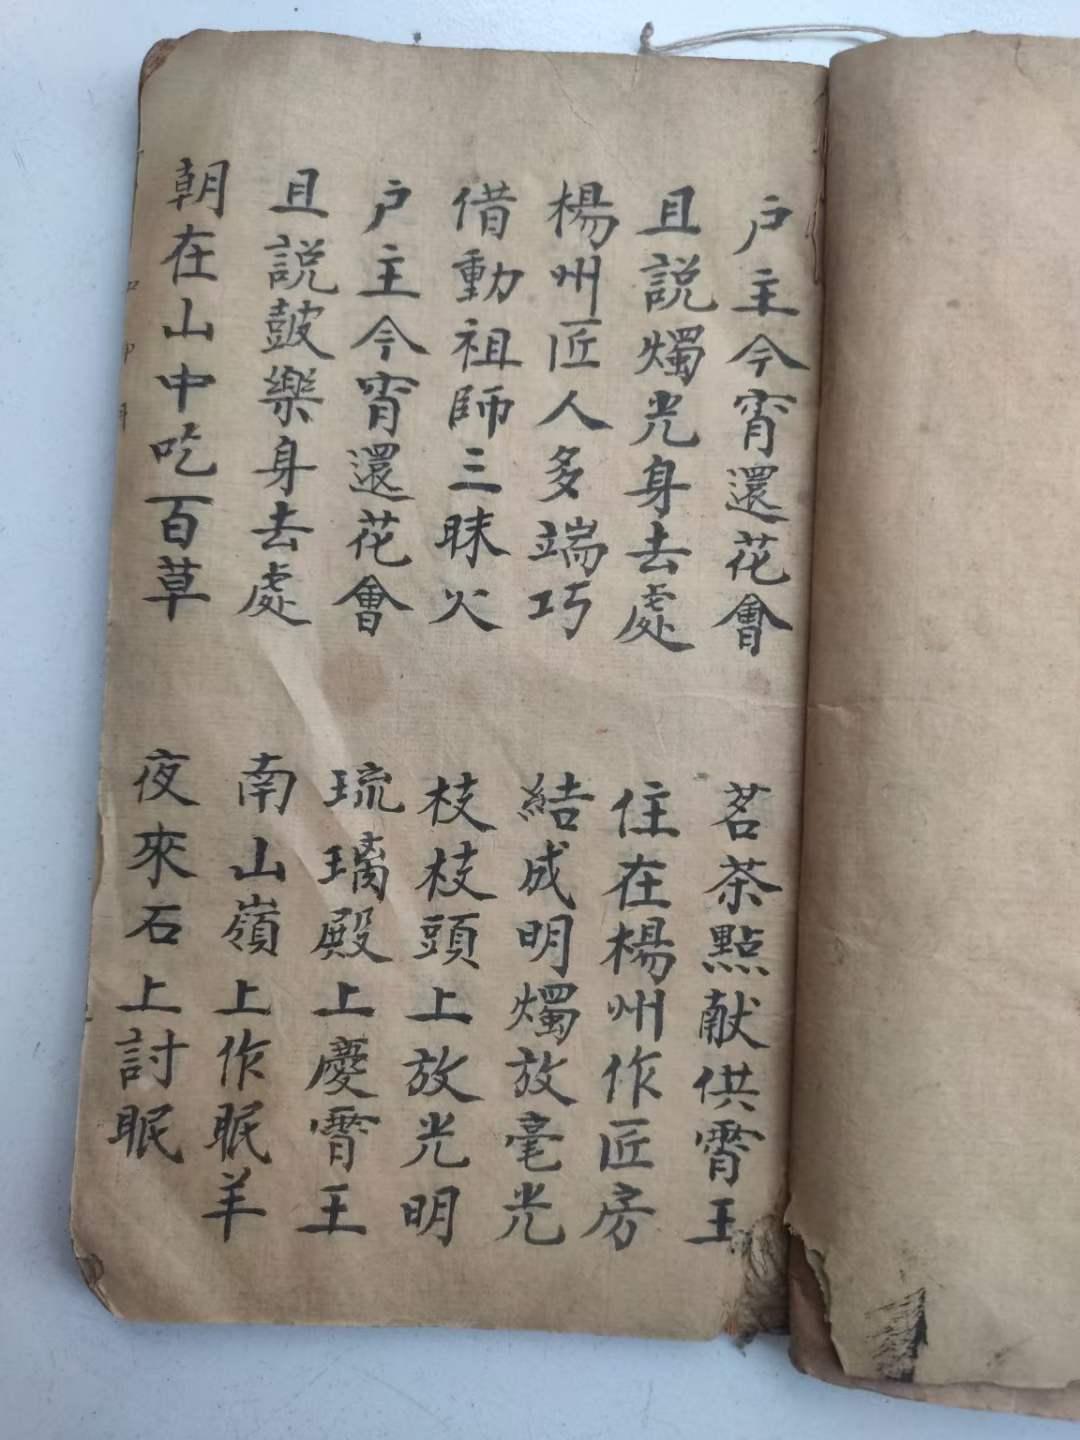 户主今宵還花會　茗茶點献供霄王
且説燭光身去處　住在楊州作匠房
楊州匠人多端巧　結成明燭放毫光
借動祖師三昧火　枝枝頭上放光明
户主今宵還花會　琉璃殿上慶霄王
且説皷樂身去處　南山嶺上作眠羊
朝在山中吃百草　夜來石上討眠